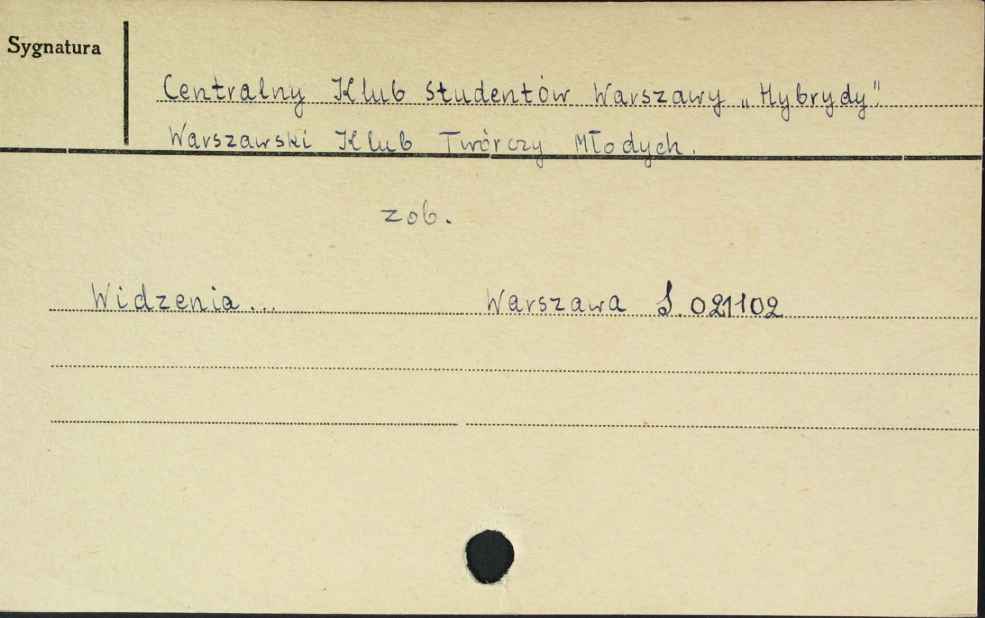 Sygnatura
Centralny Klub Studentów Warszawy „Hybrydy".
Warszawski Klub Twórczy Młodych.
zob.
Widzenia... Warszawa S. 021102